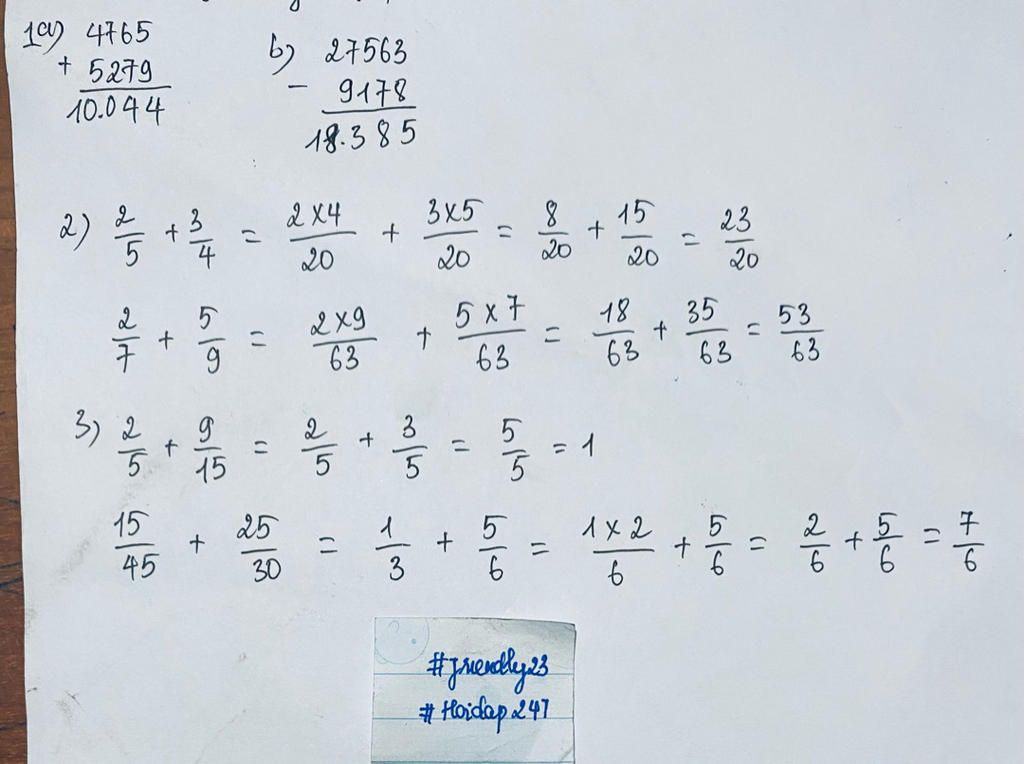 1a) 4765 b) 27563
+ 5279 - 9178
10.044 18.385
2) 2/5 + 3/4 = 2x4/20 + 3x5/20 = 8/20 + 15/20 = 23/20
2/7 + 5/9 = 2x9/63 + 5x7/63 = 18/63 + 35/63 = 53/63
3) 2/5 + 9/15 = 2/5 + 3/5 = 5/5 = 1
15/45 + 25/30 = 1/3 + 5/6 = 1x2/6 + 5/6 = 2/6 + 5/6 = 7/6
#friendly23
#Hoidap247